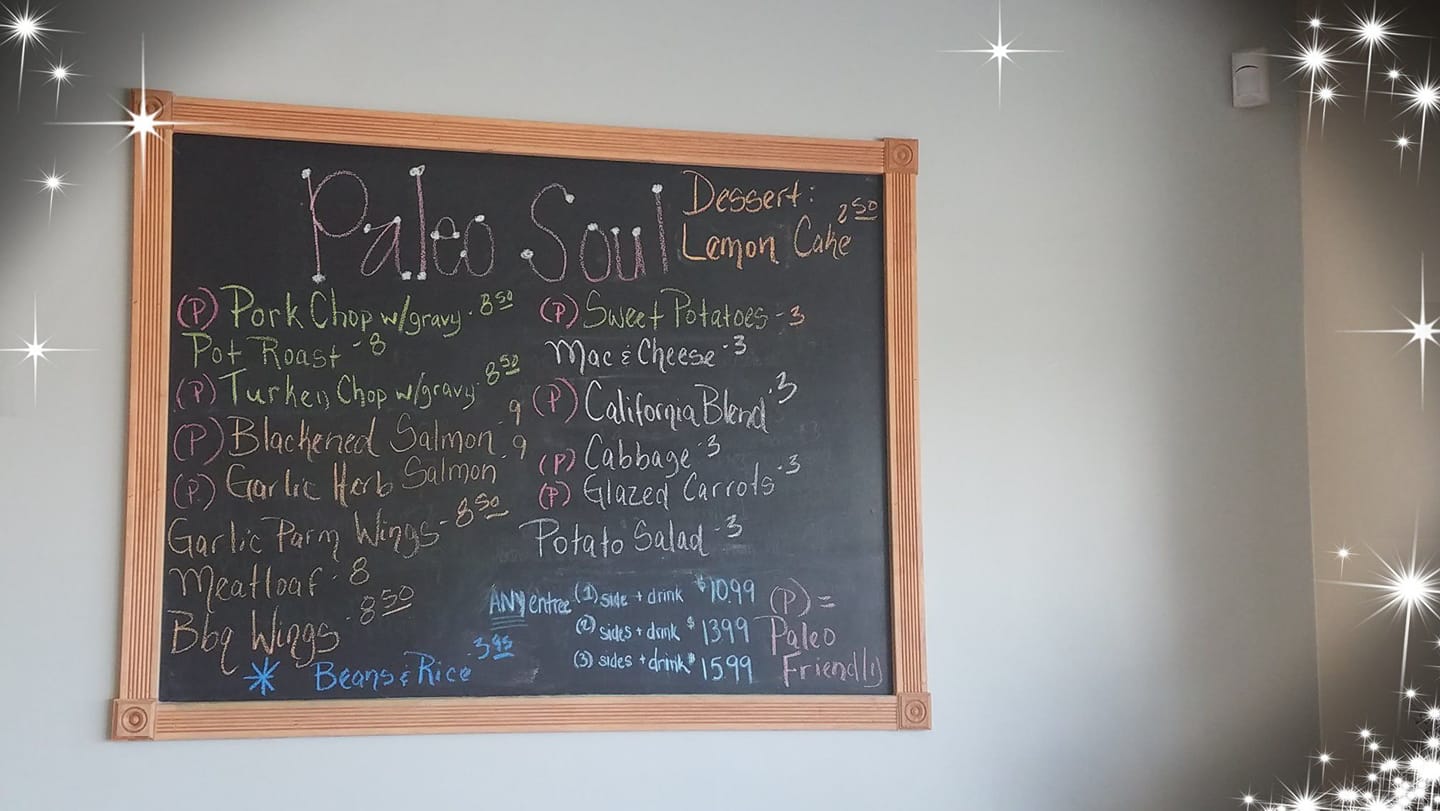 Paleo Soul
Dessert:
Lemon Cake 2.50
(P) Pork Chop w/gravy - 8.50
Pot Roast - 8
(P) Turken Chop w/gravy - 8.50
(P) Blackened Salmon - 9
(P) Garlic Herb Salmon - 9
Garlic Parm Wings - 8.50
Meatloaf - 8
Bbq Wings - 8.50
* Beans & Rice 3.95
(P) Sweet Potatoes - 3
Mac & Cheese - 3
(P) California Blend - 3
(P) Cabbage - 3
(P) Glazed Carrots - 3
Potato Salad - 3
ANY entree (1) side + drink $10.99
(2) sides + drink $13.99
(3) sides + drink $15.99
(P) =
Paleo
Friendly